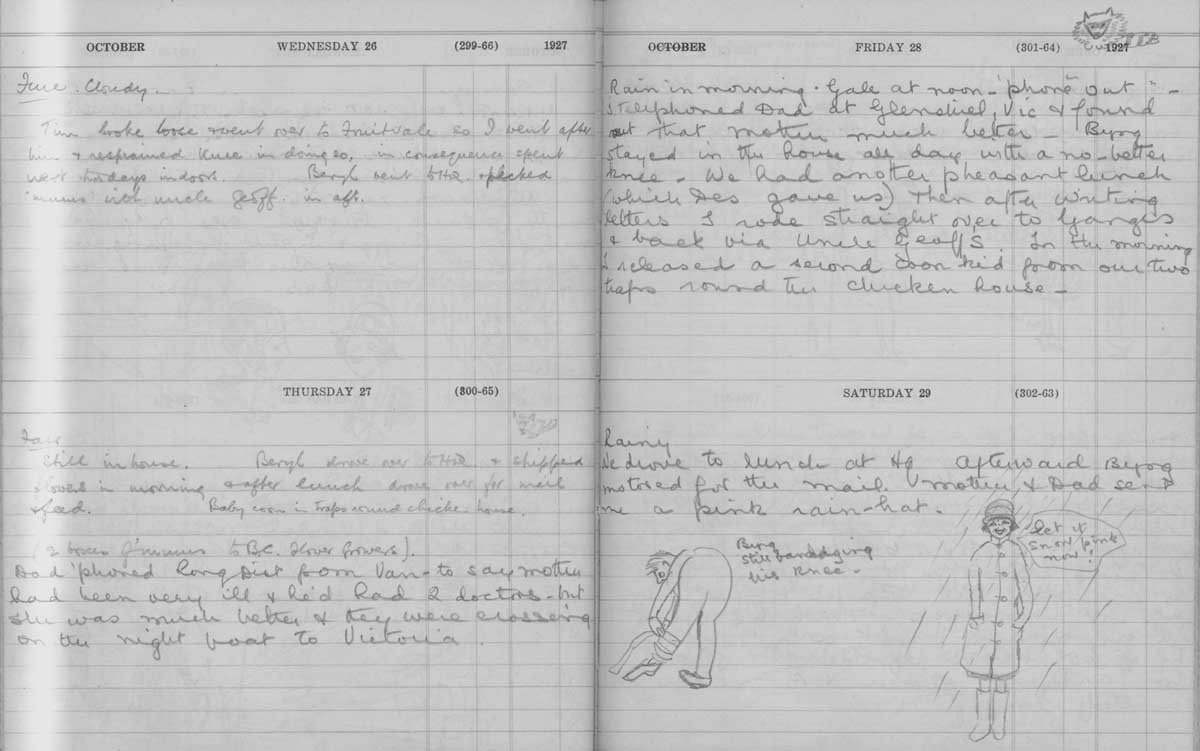 OCTOBER WEDNESDAY 26 (299-66) 1927
Fine. Cloudy.
Tim broke loose & went over to Fruitvale so I went after
him & resprained knee in doing so, in consequence spent
next two days indoors. Beryl went to HQ & picked
'mums with uncle Geoff. in aft.
THURSDAY 27 (300-65)
Fair
Still in house. Beryl drove over to HQ & shipped
flowers in morning & after lunch drove over for mail
& feed. Baby coon in traps round chicken house.
(2 boxes of 'mums to B.C. Flower Growers).
Dad 'phoned Long Dist from Van - to say mother
had been very ill & he'd had 2 doctors - but
she was much better & they were crossing
on the night boat to Victoria.
OCTOBER FRIDAY 28 (301-64) 1927
Rain in morning. Gale at noon - "phone out" -
I telephoned Dad at Vic & found
out that mother much better - Byng
stayed in the house all day with a no-better
knee - We had another pheasant lunch
(which Des gave us) Then after writing
letters I rode straight over to Ganges
& back via Uncle Geoff's. In the morning
I released a second coon kid from our two
traps round the chicken house -
SATURDAY 29 (302-63)
Rainy
We drove to lunch at HQ Afterward Byng
motored for the mail mother & Dad sent
me a pink rain-hat.
Byng
still bandaging
his knee -
Let it
snow pink
now!